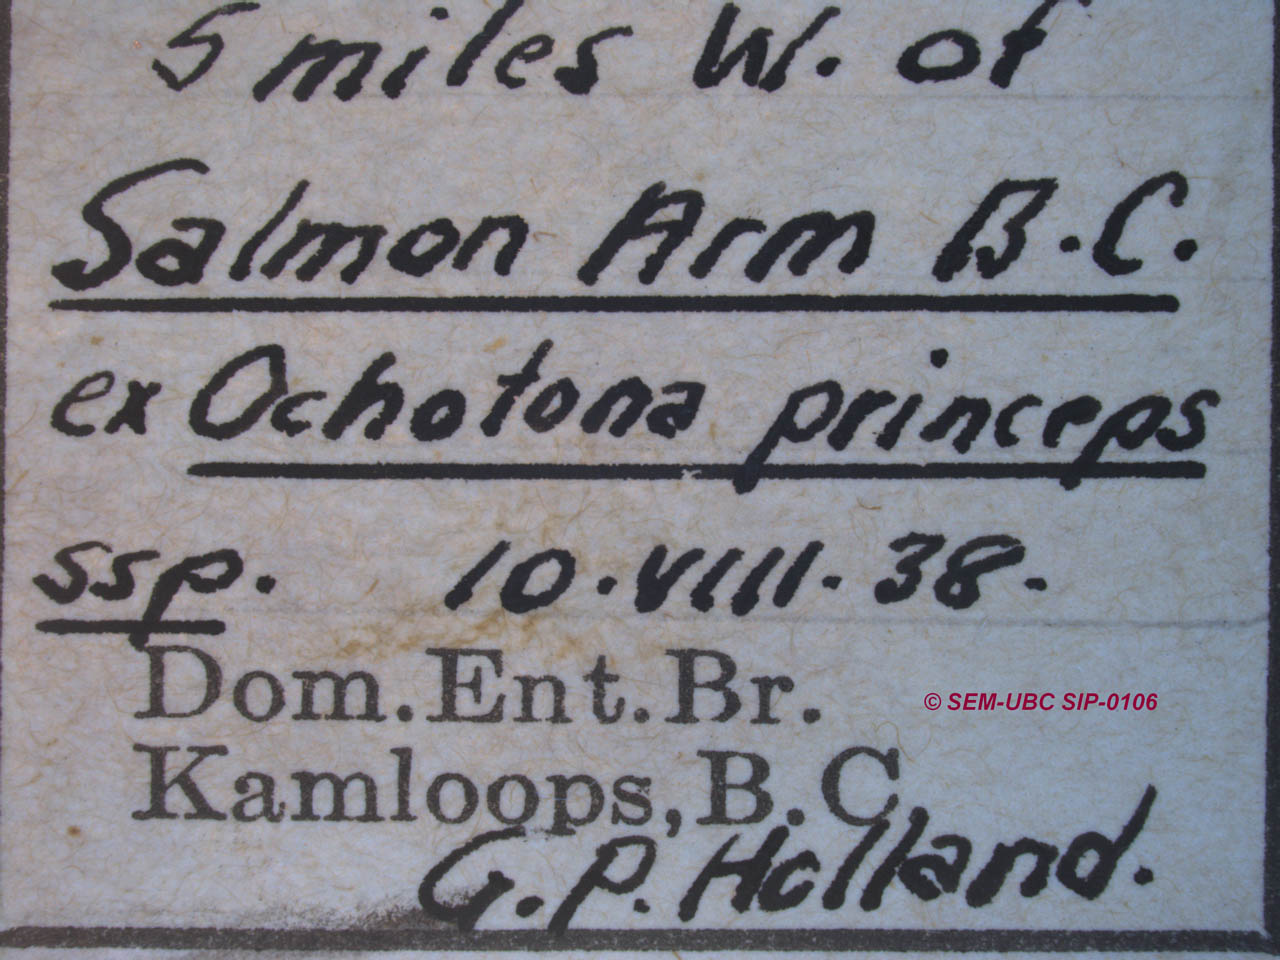 5 miles W. of
Salmon Arm B.C.
ex Ochotona princeps
ssp. 10.VIII.38.
Dom.Ent.Br.
© SEM-UBC SIP-0106
Kamloops,B.C.
G.P.Holland.